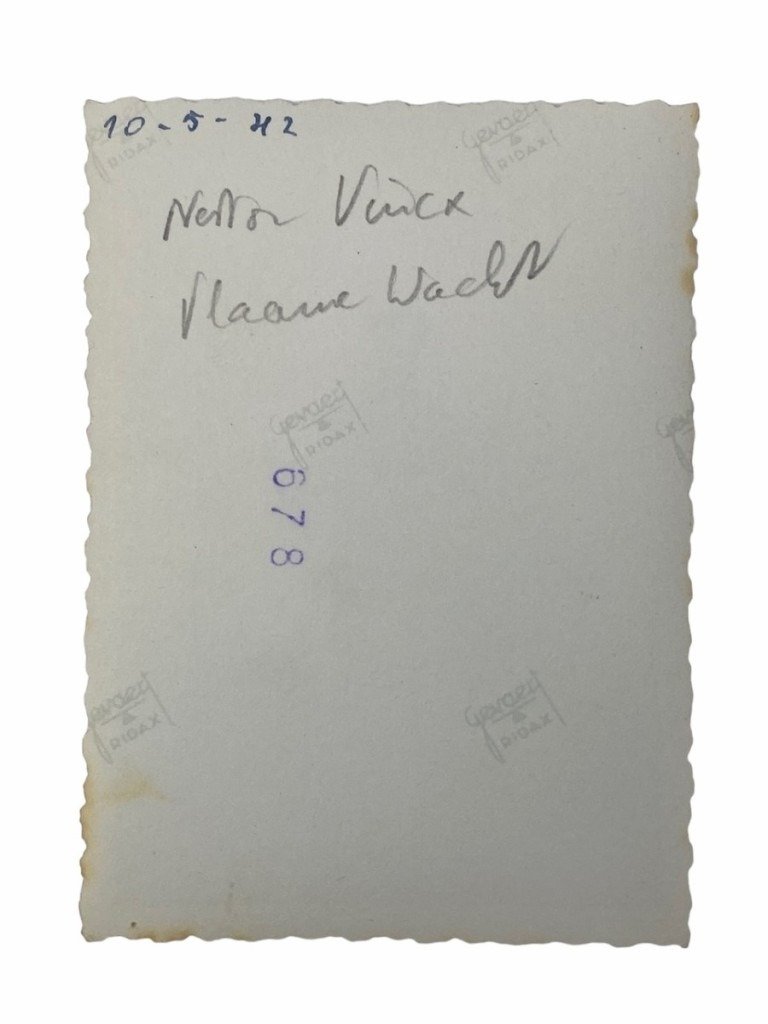 10-5-42
Gevaert
RIDAX
Gevaert
RIDAX
Nestor Vinck
Vlaamse Wacht
Gevaert
RIDAX
Gevaert
678
Gevaert
RIDAX
Gevaert
RIDAX